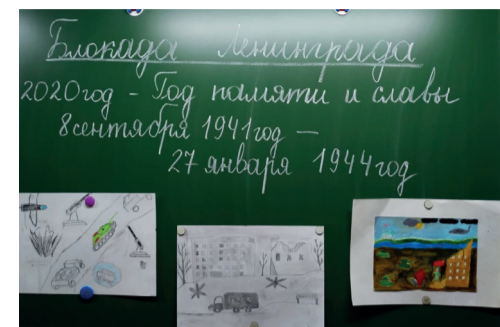 Блокада Ленинграда
2020год - Год памяти и славы
8сентября 1941год —
27 января 1944год